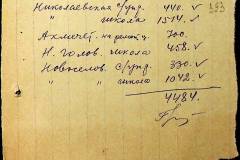 Николаевская с/упр. 440. ✓
" школа 1514. ✓
Ахмечет. на ремонт у. 700.
Н. Голов. школа 458. ✓
Новоселов. с/упр. 330. ✓
" " школа 1042. ✓
4484.